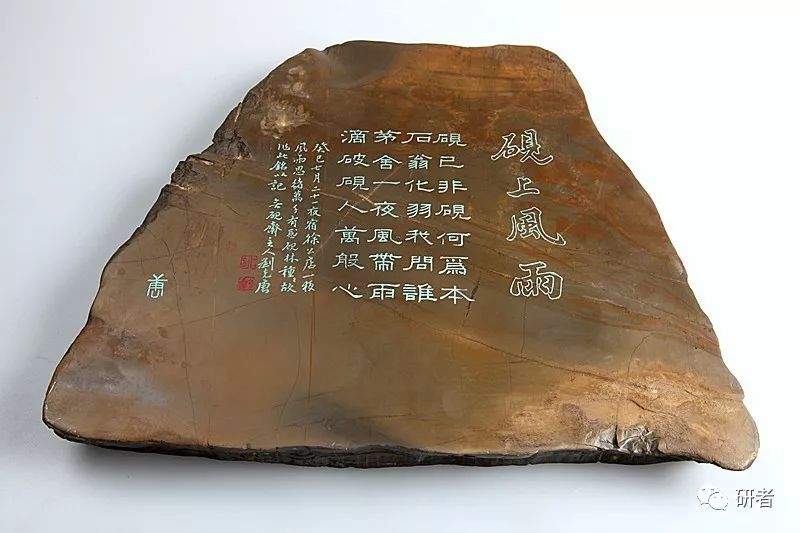 硯上風雨
硯已非硯何爲本
石翁化羽我問誰
茅舍一夜風帶雨
滴破硯人萬般心
癸巳七月二十一夜宿徐公店一夜
風雨思緒萬千有感硯林種〻故
此銘以記 硯齋主人劉克唐
唐
研者